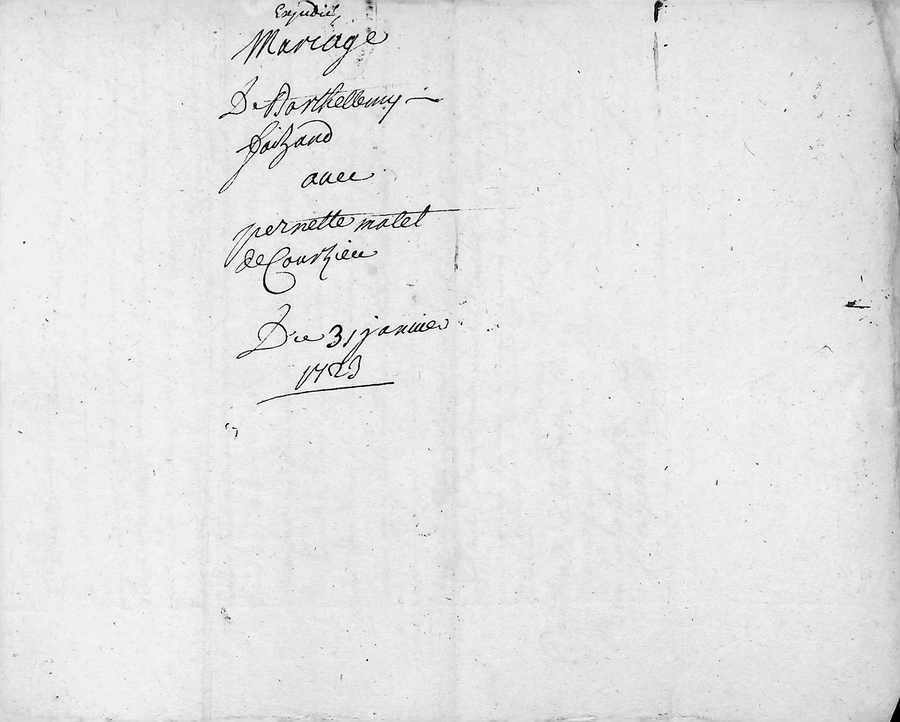 Expédié
Mariage
De Barthellemy
avec
pernette molet
de Courzieu
Du 31 janvier
1723